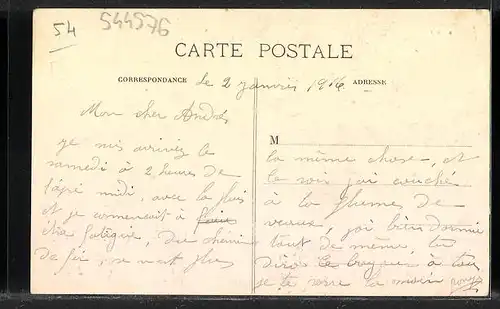 54
544576
CARTE POSTALE
CORRESPONDANCE
ADRESSE
le 2 janvier 1916
Mon cher André,
je suis arrivez le
samedi à 2 heures de
l'apré midi, avec la pluis
et je comencait à
etre fatigué, du chemin
de fer, se n'est plus
M
la même chose, et
le soir j'ai couché
à la plumes de
j'ai bien dormie
tout de même, tu
diras le à ton
je te serre la main